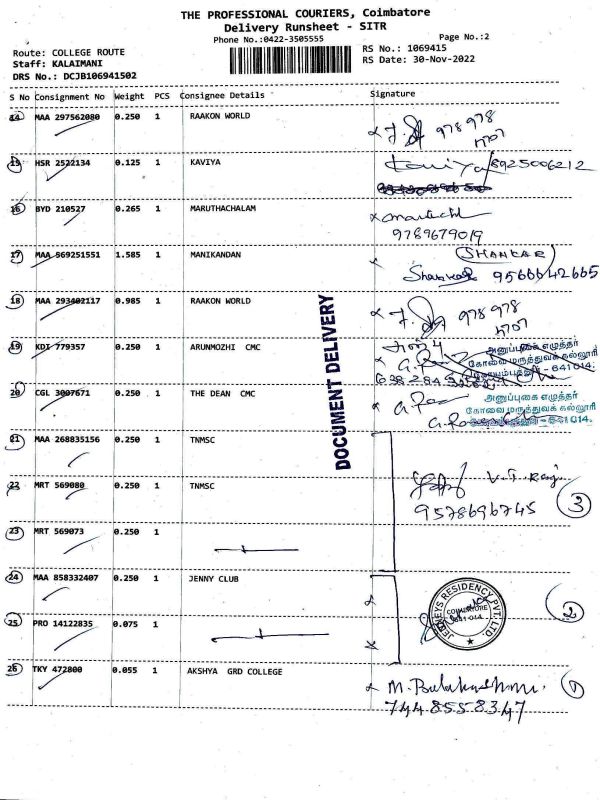 THE PROFESSIONAL COURIERS, Coimbatore
Delivery Runsheet - SITR
Phone No.:0422-3505555
Page No.:2
Route: COLLEGE ROUTE
RS No.: 1069415
Staff: KALAIMANI
RS Date: 30-Nov-2022
DRS No.: DCJB106941502
S No Consignment No Weight PCS Consignee Details Signature
14 MAA 297562080 0.250 1 RAAKON WORLD
978 978
4707
15 HSR 2522134 0.125 1 KAVIYA Kaviya 8925006212
16 BYD 210527 0.265 1 MARUTHACHALAM
9789679019
17 MAA 569251551 1.585 1 MANIKANDAN SHANKAR
Shankar 9566642665
18 MAA 293402117 0.985 1 RAAKON WORLD
978 978
4707
19 KDI 779357 0.250 1 ARUNMOZHI CMC
அனுப்புகை எழுத்தர்
கோவை மருத்துவக் கல்லூரி
கோயம்புத்தூர் - 641014.
20 CGL 3007671 0.250 1 THE DEAN CMC
அனுப்புகை எழுத்தர்
கோவை மருத்துவக் கல்லூரி
641014.
DOCUMENT DELIVERY
21 MAA 268835156 0.250 1 TNMSC
22 MRT 569080 0.250 1 TNMSC
V.T. Raj
9578696745
3
23 MRT 569073 0.250 1
24 MAA 858332407 0.250 1 JENNY CLUB
JENNEYS RESIDENCY PVT. LTD
COIMBATORE
641 014
2
25 PRO 14122835 0.075 1
26 TKY 472800 0.055 1 AKSHYA GRD COLLEGE
1
7448558347